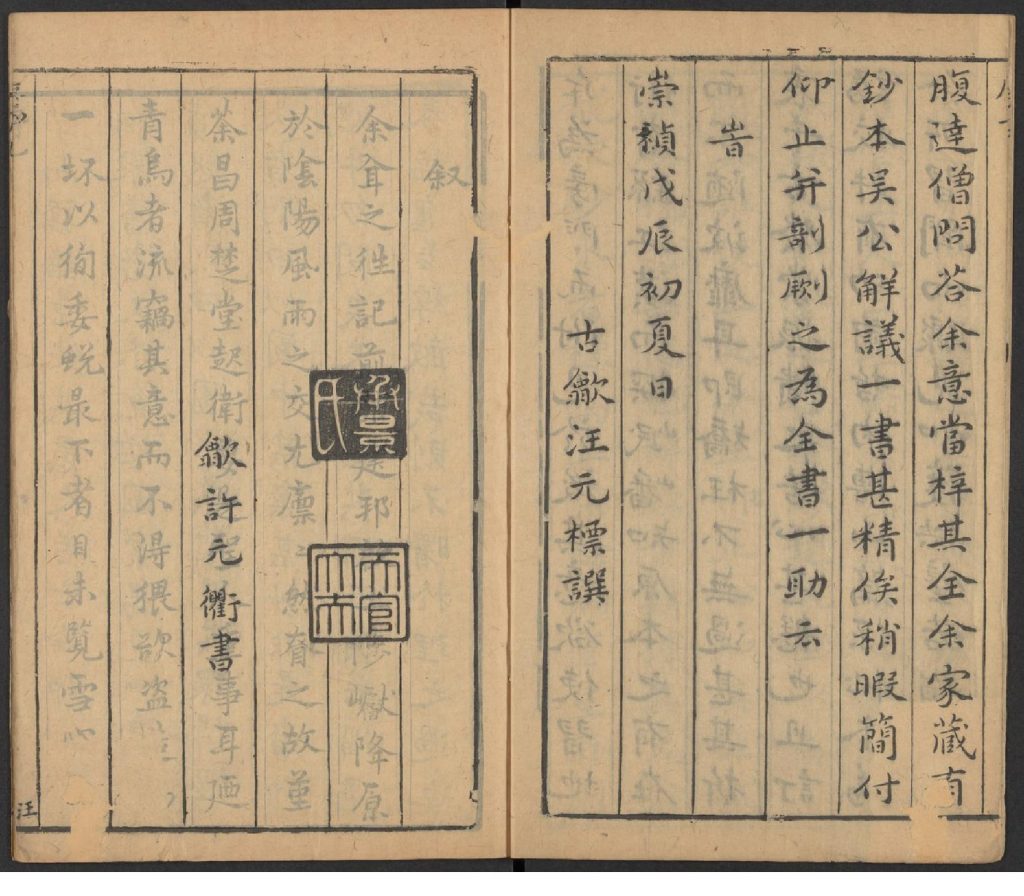 腹逹僧問荅余意當梓其全余家蔵有
鈔本吴公觧議一書甚精俟稍暇簡付
仰止并剞劂之為全書一助云
旹
崇禎戊辰初夏日
古歙汪元標譔
歙許元衢書
天官大夫
叙
余之徃記前嶽降原
於陰陽風雨之交尤廪〻然之故堇
周楚堂起衛事耳廼
青烏者流竊其意而不淂猥欲盗
一坏以徇委蛻最下者目未覽雪心
汪